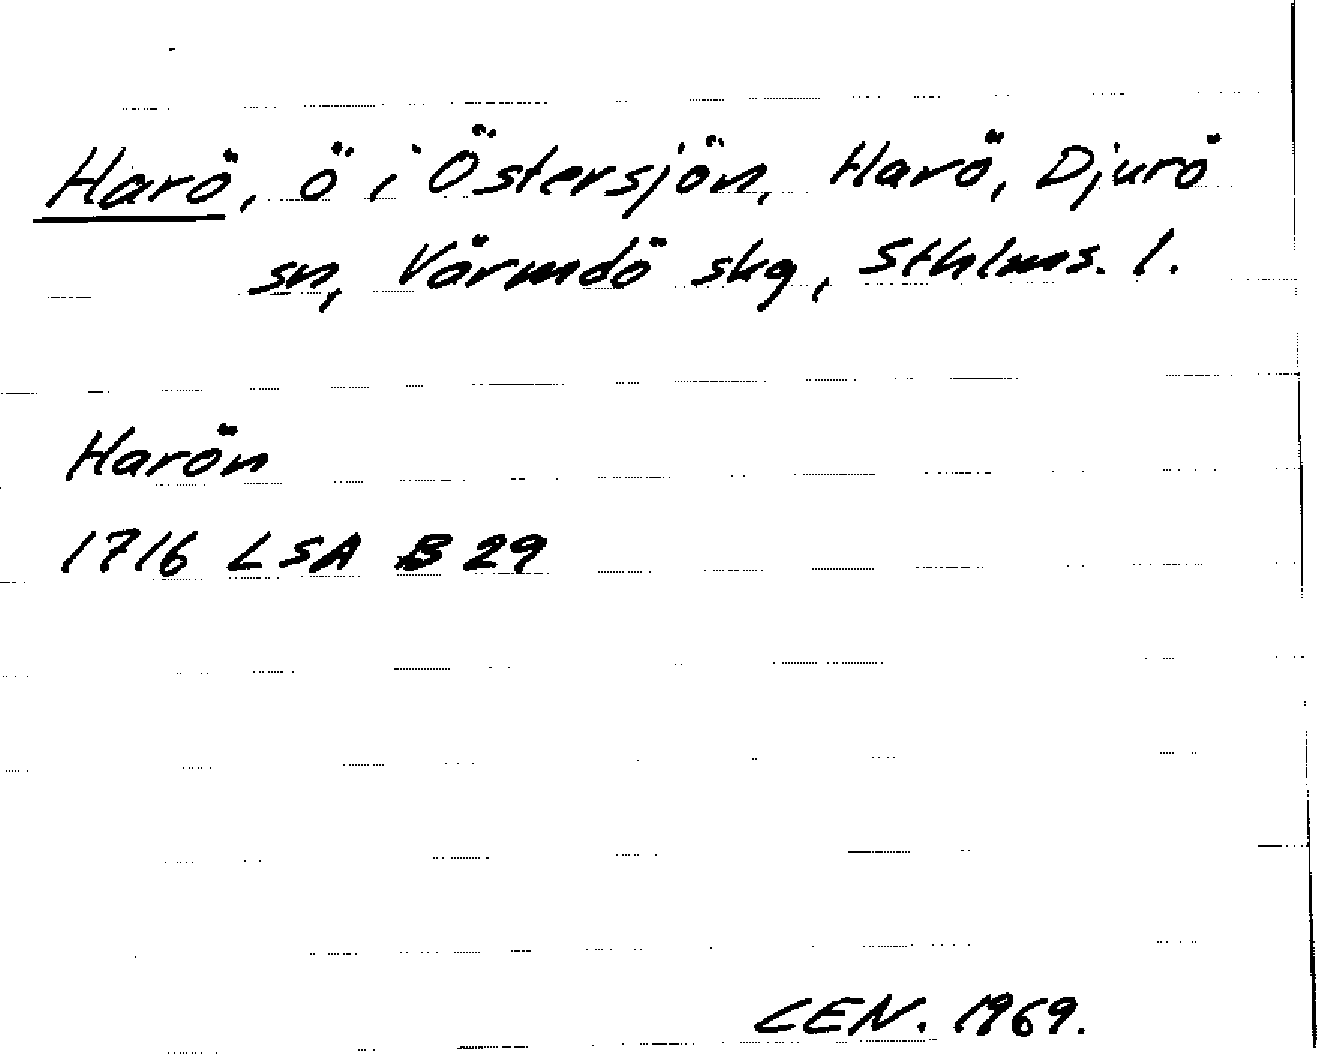 Harö, ö i Östersjön, Harö, Djurö
sn, Värmdö skg, Sthlms. l.
Harön
1716 LSA B 29
CEN. 1969.